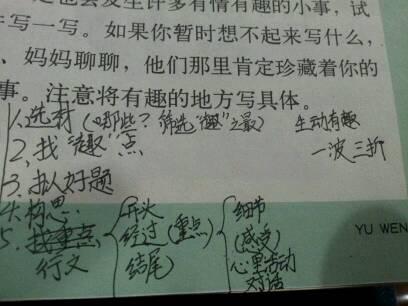 定也会发生许多有情有趣的小事，试
写一写。如果你暂时想不起来写什么，
、妈妈聊聊，他们那里肯定珍藏着你的
事。注意将有趣的地方写具体。
1.选材（哪些？筛选“趣”之最） 生动有趣
2,找“趣”点 一波三折
3.拟好题
4.构思
5. 开头 细节
经过（重点） （感受）
行文 结尾 心里活动
对话
YU WEN